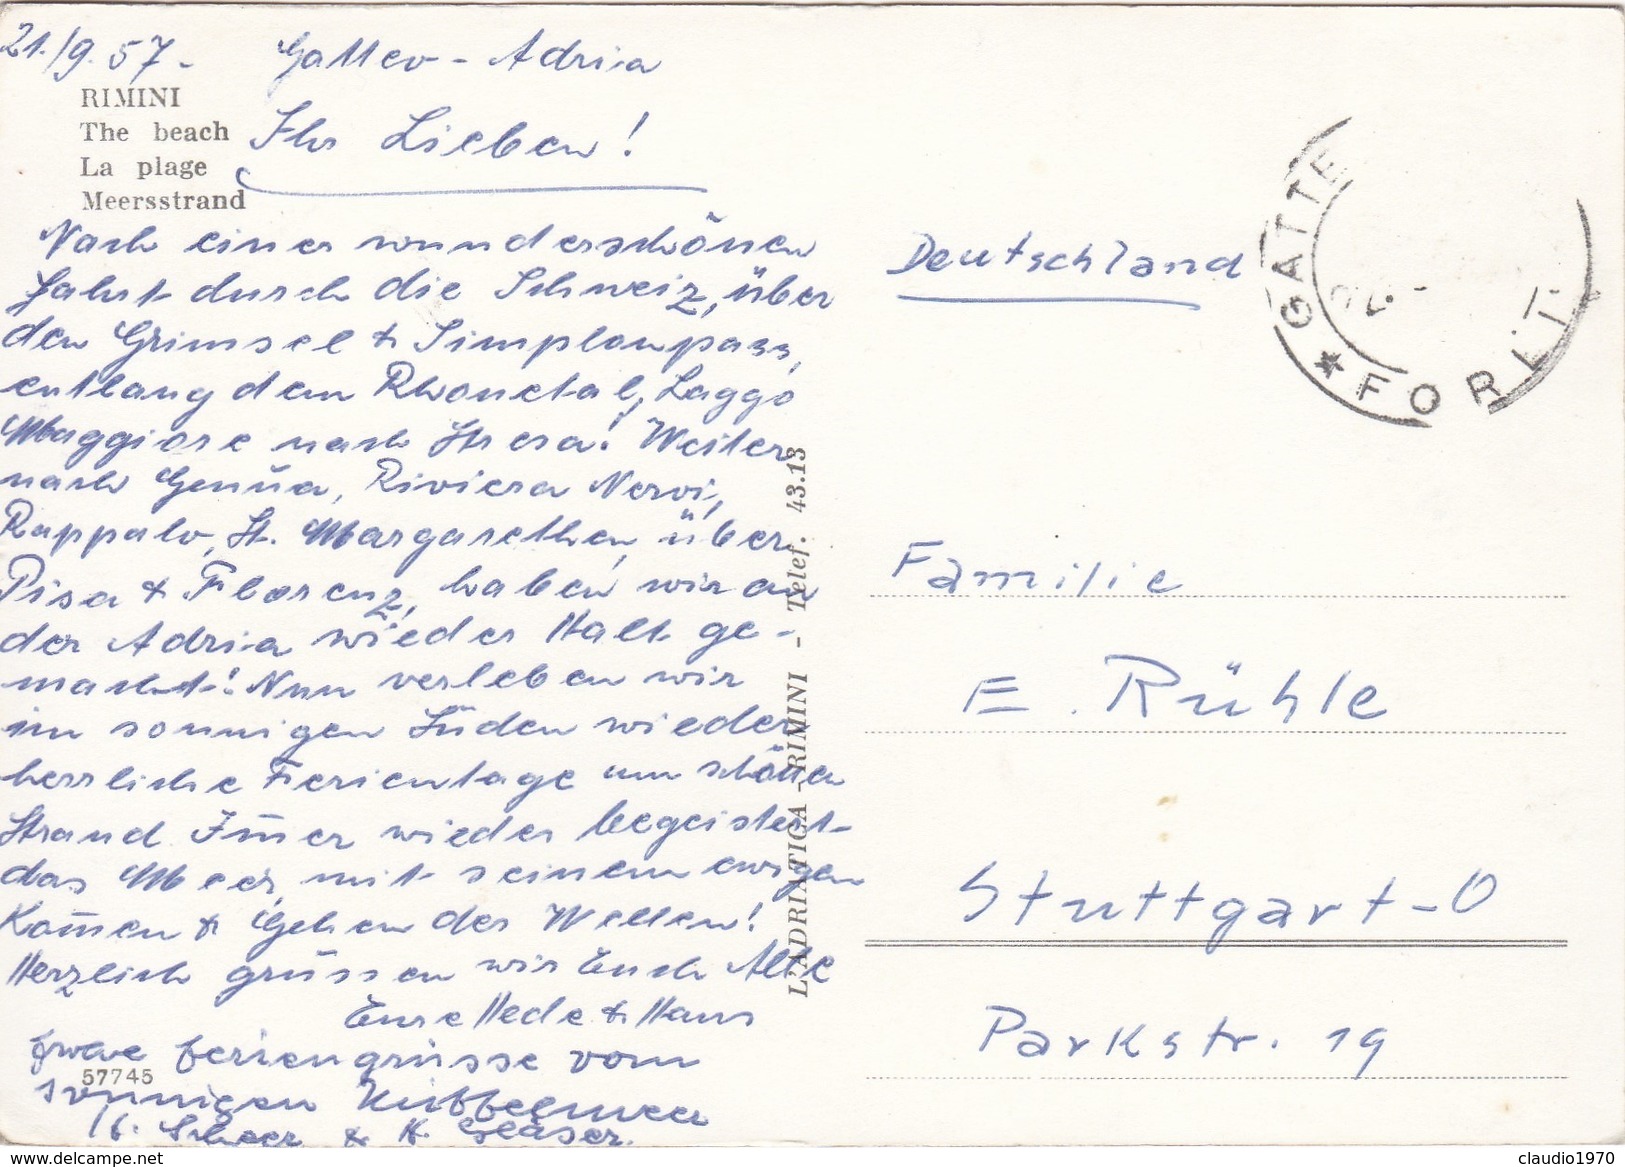 21./9.57. Gatteo - Adria
RIMINI
The beach
La plage
Meersstrand
Ihr Lieben!
Nach einer wunderschönen
Fahrt durch die Schweiz, über
den Grimsel & Simplonpass,
entlang dem Rhonetal, Laggo
Maggiore nach Stresa! Weiter
nach Genua, Riviera Nervi,
Rappalo, St. Margarethen, über
Pisa & Florenz, haben wir an
der Adria wieder Halt ge-
macht! Nun verleben wir
im sonnigen Süden wieder
herrliche Ferientage am schönen
Strand. Im̄er wieder begeistert
das Meer, mit seinem ewigen
Kom̄en & Gehen der Wellen!
Herzlich grüssen wir Euch Alle
Eure Hede & Hans
Feriengrüsse vom
57745
sonnigen Mittelmeer
Scheer & K. Gläser.
L'ADRIATICA - RIMINI - Telef. 43.13
Deutschland
GATTE
* FORLI
Familie
E. Rühle
Stuttgart-O
Parkstr. 19
delcampe.net
claudio1970